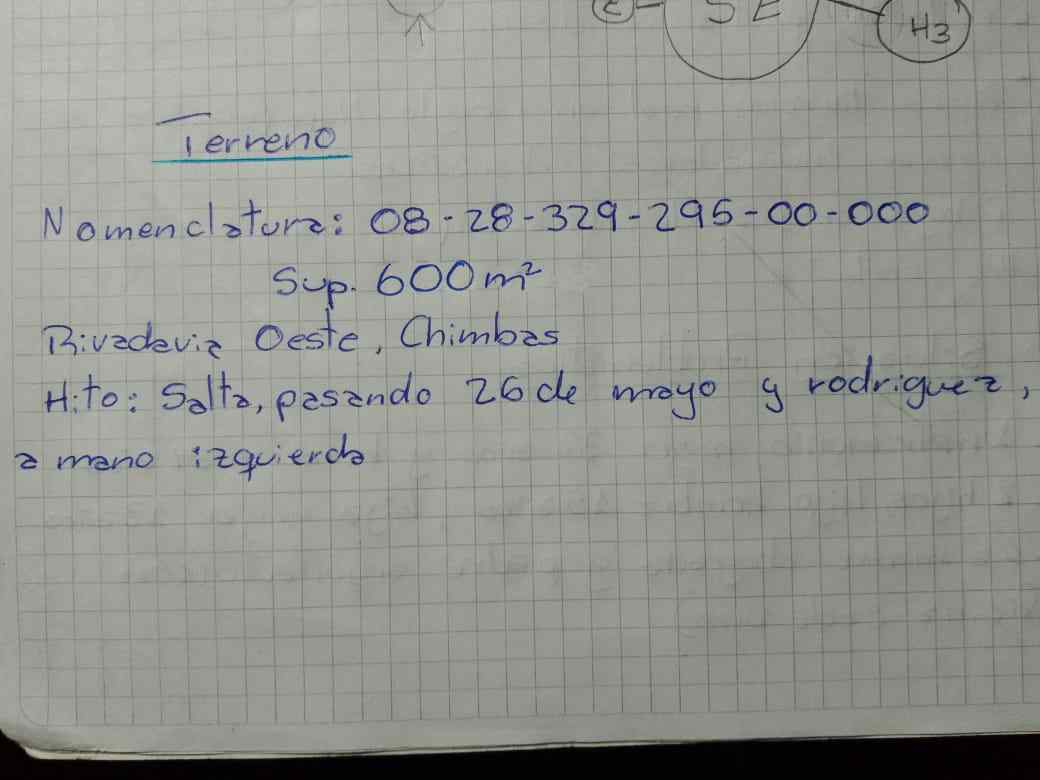 SE
H3
Terreno
Nomenclatura: 08-28-329-295-00-000
Sup. 600m²
Rivadavia Oeste, Chimbas
Hito: Salta, pasando 26 de mayo y rodriguez,
a mano izquierda